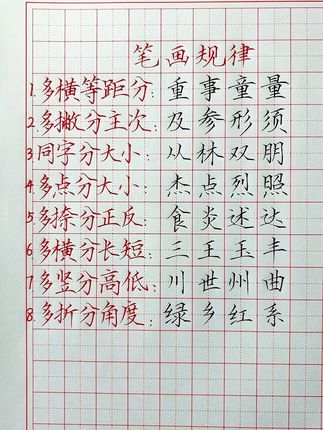 笔画规律
1.多横等距分：重事童量
2.多撇分主次：及参形须
3同字分大小：从林双朋
4.多点分大小：杰点烈照
5多捺分正反：食炎述达
6多横分长短：三王玉丰
7多竖分高低：川世州曲
8.多折分角度：绿乡红系